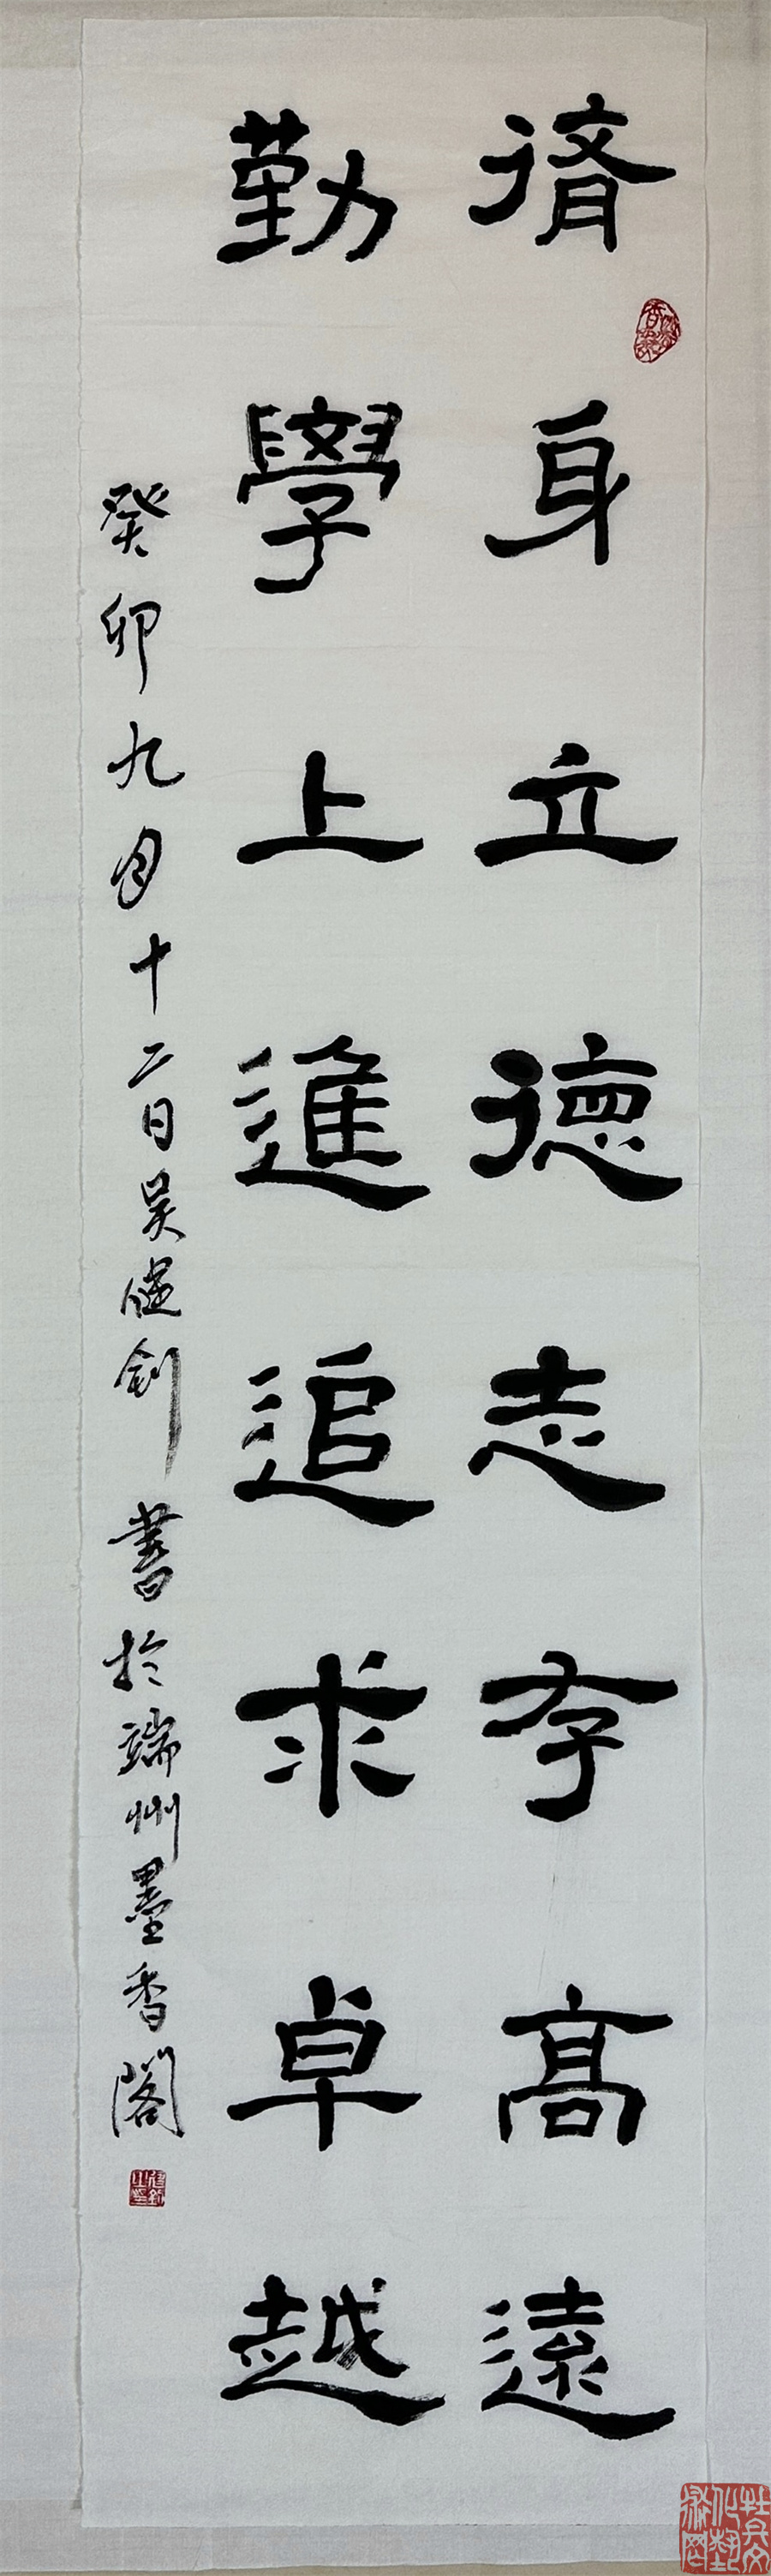 脩身立德志存高遠
勤學上進追求卓越
癸卯九月十二日吴健釗書於端州墨香閣